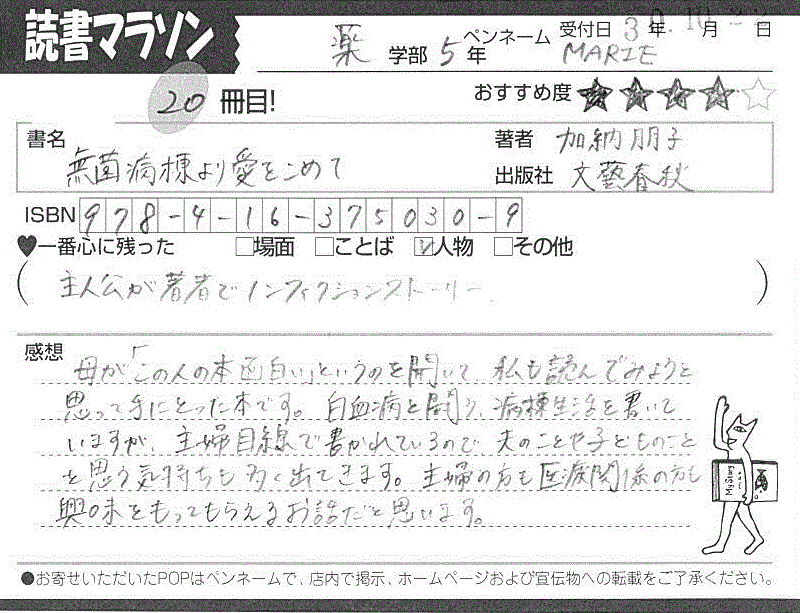 読書マラソン
薬 学部 5 年 ペンネーム MARIE 受付日 30年 10月 日
20 冊目!
おすすめ度 ★★★★☆
書名 無菌病棟より愛をこめて
著者 加納朋子
出版社 文藝春秋
ISBN 978-4-16-375030-9
♥一番心に残った □場面 □ことば ☑人物 □その他
(主人公が著者でノンフィクションストーリー。)
感想
母が「この人の本面白い」というのを聞いて、私も読んでみようと
思って手にとった本です。白血病と闘う、病棟生活を書いて
いますが、主婦目線で書かれているので夫のことや子どものこと
を思う気持ちも多く出てきます。主婦の方も医療関係の方も
興味をもってもらえるお話だと思います。
●お寄せいただいたPOPはペンネームで、店内で掲示、ホームページおよび宣伝物への転載をご了承ください。